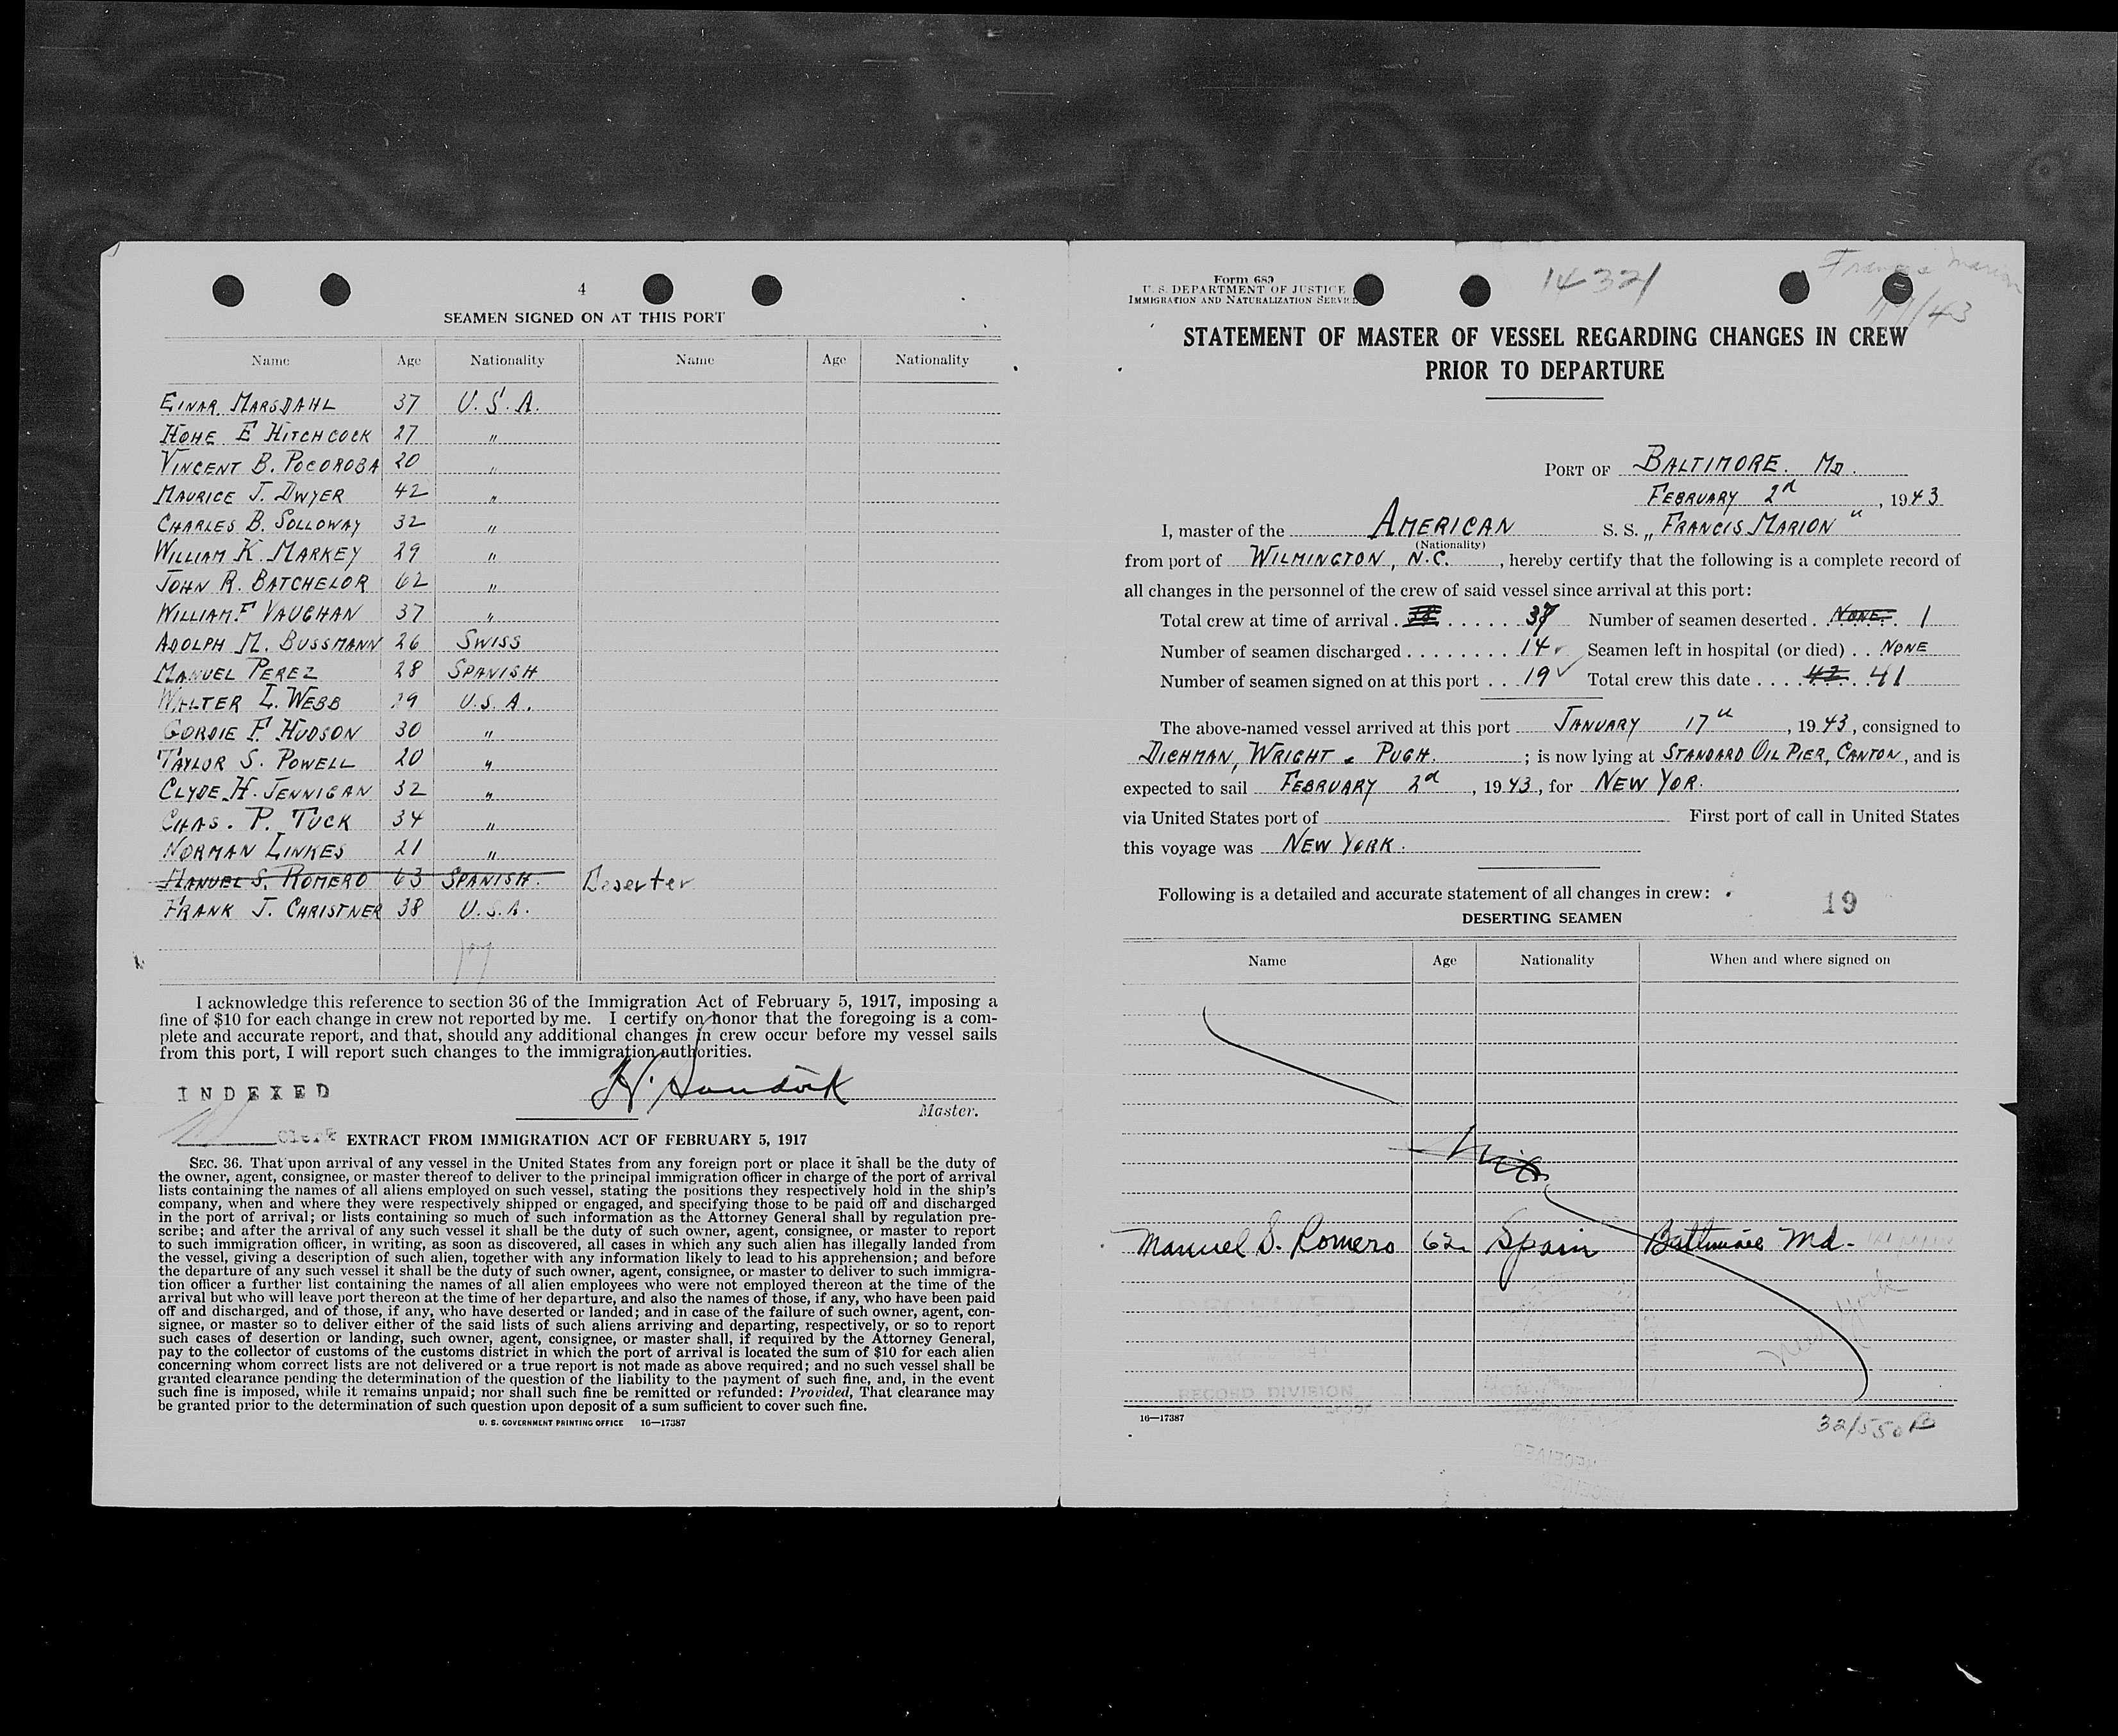 4
SEAMEN SIGNED ON AT THIS PORT
Name Age Nationality Name Age Nationality
EINAR MARSDAHL 37 U.S.A.
HOHE E HITCHCOCK 27 "
VINCENT B. POCOROBA 20 "
MAURICE J. DWYER 42 "
CHARLES B. SOLLOWAY 32 "
WILLIAM K. MARKEY 29 "
JOHN R. BATCHELOR 62 "
WILLIAM F VAUGHAN 37 "
ADOLPH M. BUSSMANN 26 SWISS
MANUEL PEREZ 28 SPANISH
WALTER L. WEBB 19 U.S.A.
GORDIE F. HUDSON 30 "
TAYLOR S. POWELL 20 "
CLYDE H. JENNIGAN 32 "
CHAS. P. TUCK 34 "
NORMAN LINKES 21 "
MANUEL S. ROMERO 63 SPANISH. Deserter
FRANK J. CHRISTNER 38 U.S.A.
17
I acknowledge this reference to section 36 of the Immigration Act of February 5, 1917, imposing a
fine of $10 for each change in crew not reported by me. I certify on honor that the foregoing is a com-
plete and accurate report, and that, should any additional changes in crew occur before my vessel sails
from this port, I will report such changes to the immigration authorities.
INDEXED
Master.
Clerk
EXTRACT FROM IMMIGRATION ACT OF FEBRUARY 5, 1917
SEC. 36. That upon arrival of any vessel in the United States from any foreign port or place it shall be the duty of
the owner, agent, consignee, or master thereof to deliver to the principal immigration officer in charge of the port of arrival
lists containing the names of all aliens employed on such vessel, stating the positions they respectively hold in the ship's
company, when and where they were respectively shipped or engaged, and specifying those to be paid off and discharged
in the port of arrival; or lists containing so much of such information as the Attorney General shall by regulation pre-
scribe; and after the arrival of any such vessel it shall be the duty of such owner, agent, consignee, or master to report
to such immigration officer, in writing, as soon as discovered, all cases in which any such alien has illegally landed from
the vessel, giving a description of such alien, together with any information likely to lead to his apprehension; and before
the departure of any such vessel it shall be the duty of such owner, agent, consignee, or master to deliver to such immigra-
tion officer a further list containing the names of all alien employees who were not employed thereon at the time of the
arrival but who will leave port thereon at the time of her departure, and also the names of those, if any, who have been paid
off and discharged, and of those, if any, who have deserted or landed; and in case of the failure of such owner, agent, con-
signee, or master so to deliver either of the said lists of such aliens arriving and departing, respectively, or so to report
such cases of desertion or landing, such owner, agent, consignee, or master shall, if required by the Attorney General,
pay to the collector of customs of the customs district in which the port of arrival is located the sum of $10 for each alien
concerning whom correct lists are not delivered or a true report is not made as above required; and no such vessel shall be
granted clearance pending the determination of the question of the liability to the payment of such fine, and, in the event
such fine is imposed, while it remains unpaid; nor shall such fine be remitted or refunded: Provided, That clearance may
be granted prior to the determination of such question upon deposit of a sum sufficient to cover such fine.
U. S. GOVERNMENT PRINTING OFFICE 16—17387
Form 689
U. S. DEPARTMENT OF JUSTICE
IMMIGRATION AND NATURALIZATION SERVICE
14321
Francis Marion
STATEMENT OF MASTER OF VESSEL REGARDING CHANGES IN CREW
PRIOR TO DEPARTURE
PORT OF BALTIMORE. MD.
FEBRUARY 2d, 1943
I, master of the AMERICAN S. S. „ FRANCIS MARION "
(Nationality)
from port of WILMINGTON, N.C., hereby certify that the following is a complete record of
all changes in the personnel of the crew of said vessel since arrival at this port:
Total crew at time of arrival . 37 Number of seamen deserted . NONE. 1
Number of seamen discharged . . . . . . . . 14 ✓ Seamen left in hospital (or died) . . NONE
Number of seamen signed on at this port . . . 19 ✓ Total crew this date . . . . 42 . . 41
The above-named vessel arrived at this port JANUARY 17th, 1943, consigned to
DICHMAN, WRIGHT & PUGH. ; is now lying at STANDARD OIL PIER, CANTON, and is
expected to sail FEBRUARY 2d, 1943, for NEW YOR.
via United States port of First port of call in United States
this voyage was NEW YORK.
Following is a detailed and accurate statement of all changes in crew:
19
DESERTING SEAMEN
Name Age Nationality When and where signed on
Manuel S. Romero 62 Spain Baltimore Md.
New York
RECORD DIVISION
16—17387
32/550 B
RECEIVED